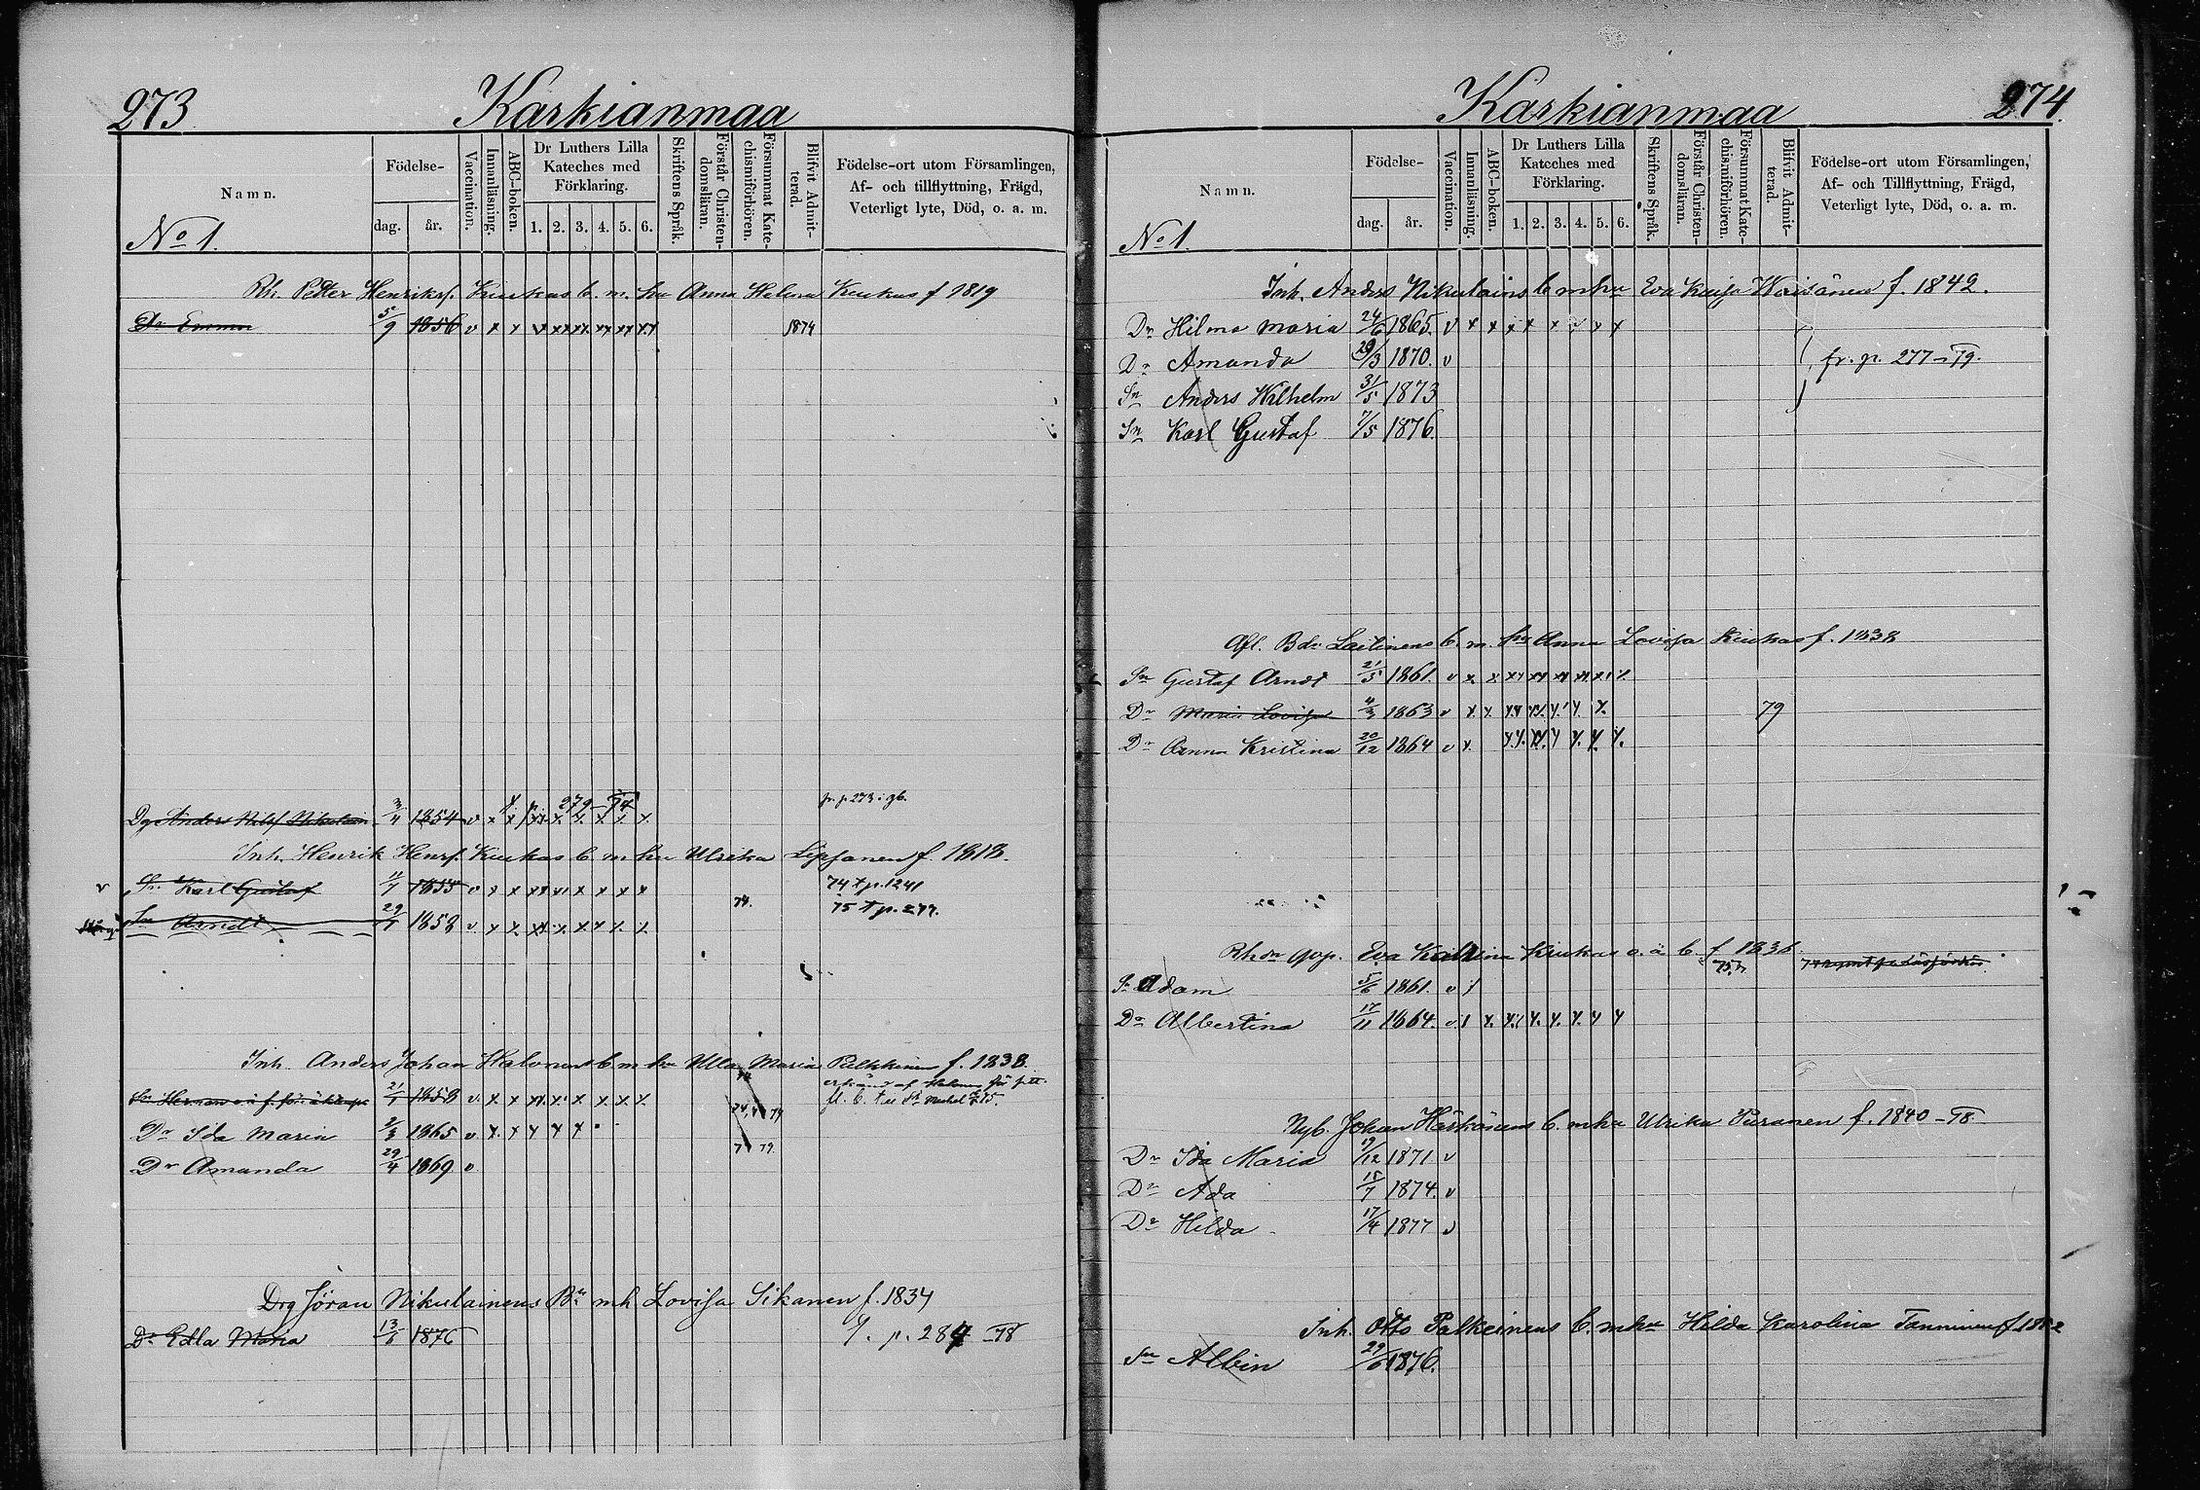 273 Karkianmaa
Namn.
Födelse-
dag. år.
Vaccination.
Innanläsning.
ABC-boken.
Dr Luthers Lilla Kateches med Förklaring.
1. 2. 3. 4. 5. 6.
Skriftens Språk.
Förstår Christendomsläran.
Försummat Katechismiförhören.
Blifvit Admitterad.
Födelse-ort utom Församlingen, Af- och tillflyttning, Frägd, Veterligt lyte, Död, o. a. m.
No 1.
Rh. Petter Henriksf. Kiukas b. m. hu Anna Helena Kiukas f 1819
Dr Emma 5/9 1856 v x x v xx xx xx xx xx 1874
p. 279-74
Dg Anders Nikulain 3/4 1854 v x x xx x x x x x fr. p 273
Inh. Henrik Henrsf. Kiukas b. m hu Ulrika Lipsanen f. 1818.
Sn Karl Gustaf 11/7 1855 v x x xx x x x x x 74 t p. 1241
Sn Arndt 29/7 1858 v x x xx x x x x x 74. 75 t p. 277.
Inh. Anders Johan Halonens b m hu Ulla Maria Pulkkinen f. 1838.
Sn Herman 21/1 1858 v. x x xx. x x x x x. fl. b. t St Michel 75.
Dr Ida Maria 2/3 1865 v x. x x x x 74, 79
Dr Amanda 29/4 1869 v 79.
Drg Jöran Nikulainens Bn mh Lovisa Sikanen f. 1834
Dr Edla Maria 13/5 1876 p. 284 -78
Karkianmaa 274.
Namn.
Födelse-
dag. år.
Vaccination.
Innanläsning.
ABC-boken.
Dr Luthers Lilla Kateches med Förklaring.
1. 2. 3. 4. 5. 6.
Skriftens Språk.
Förstår Christendomsläran.
Försummat Katechismiförhören.
Blifvit Admitterad.
Födelse-ort utom Församlingen, Af- och Tillflyttning, Frägd, Veterligt lyte, Död, o. a. m.
No 1.
Inh. Anders Nikulains b m hu Eva Kaisa Waisänen f. 1842.
Dr Hilma Maria 24/6 1865. v x x x x x x x x
Dr Amanda 29/3 1870. v fr. p. 277-79.
Sn Anders Wilhelm 31/5 1873
Sn Karl Gustaf 7/5 1876.
Afl. Bdr Laitinens b. m. hu Anna Lovisa Kiukas f. 1838
Sn Gustaf Arndt 21/5 1861. v x. x xx xx xx xx. xx x.
Dr Maria Lovisa 4/3 1863 v x x xx xx. x x. x. 79
Dr Anna Kristina 20/12 1864 v x. x.x. xx. x x. x. x.
Rhdr gop. Eva Kaisa Kiukas o. ä b. f 1836
Sn Adam 5/6 1861. v x
Dr Albertina 17/11 1864. v x x. x. x. x. x. x x
Nyb. Johan Härkönens b. m hu Ulrika Puranen f. 1840 -78
Dr Ida Maria 19/12 1871. v
Dr Ada 18/7 1874. v
Dr Hilda 17/4 1877 v
Inh. Otto Palkeinens b. m hu Hilda Karolina Tanninen f
Sn Albin 29/6 1876.